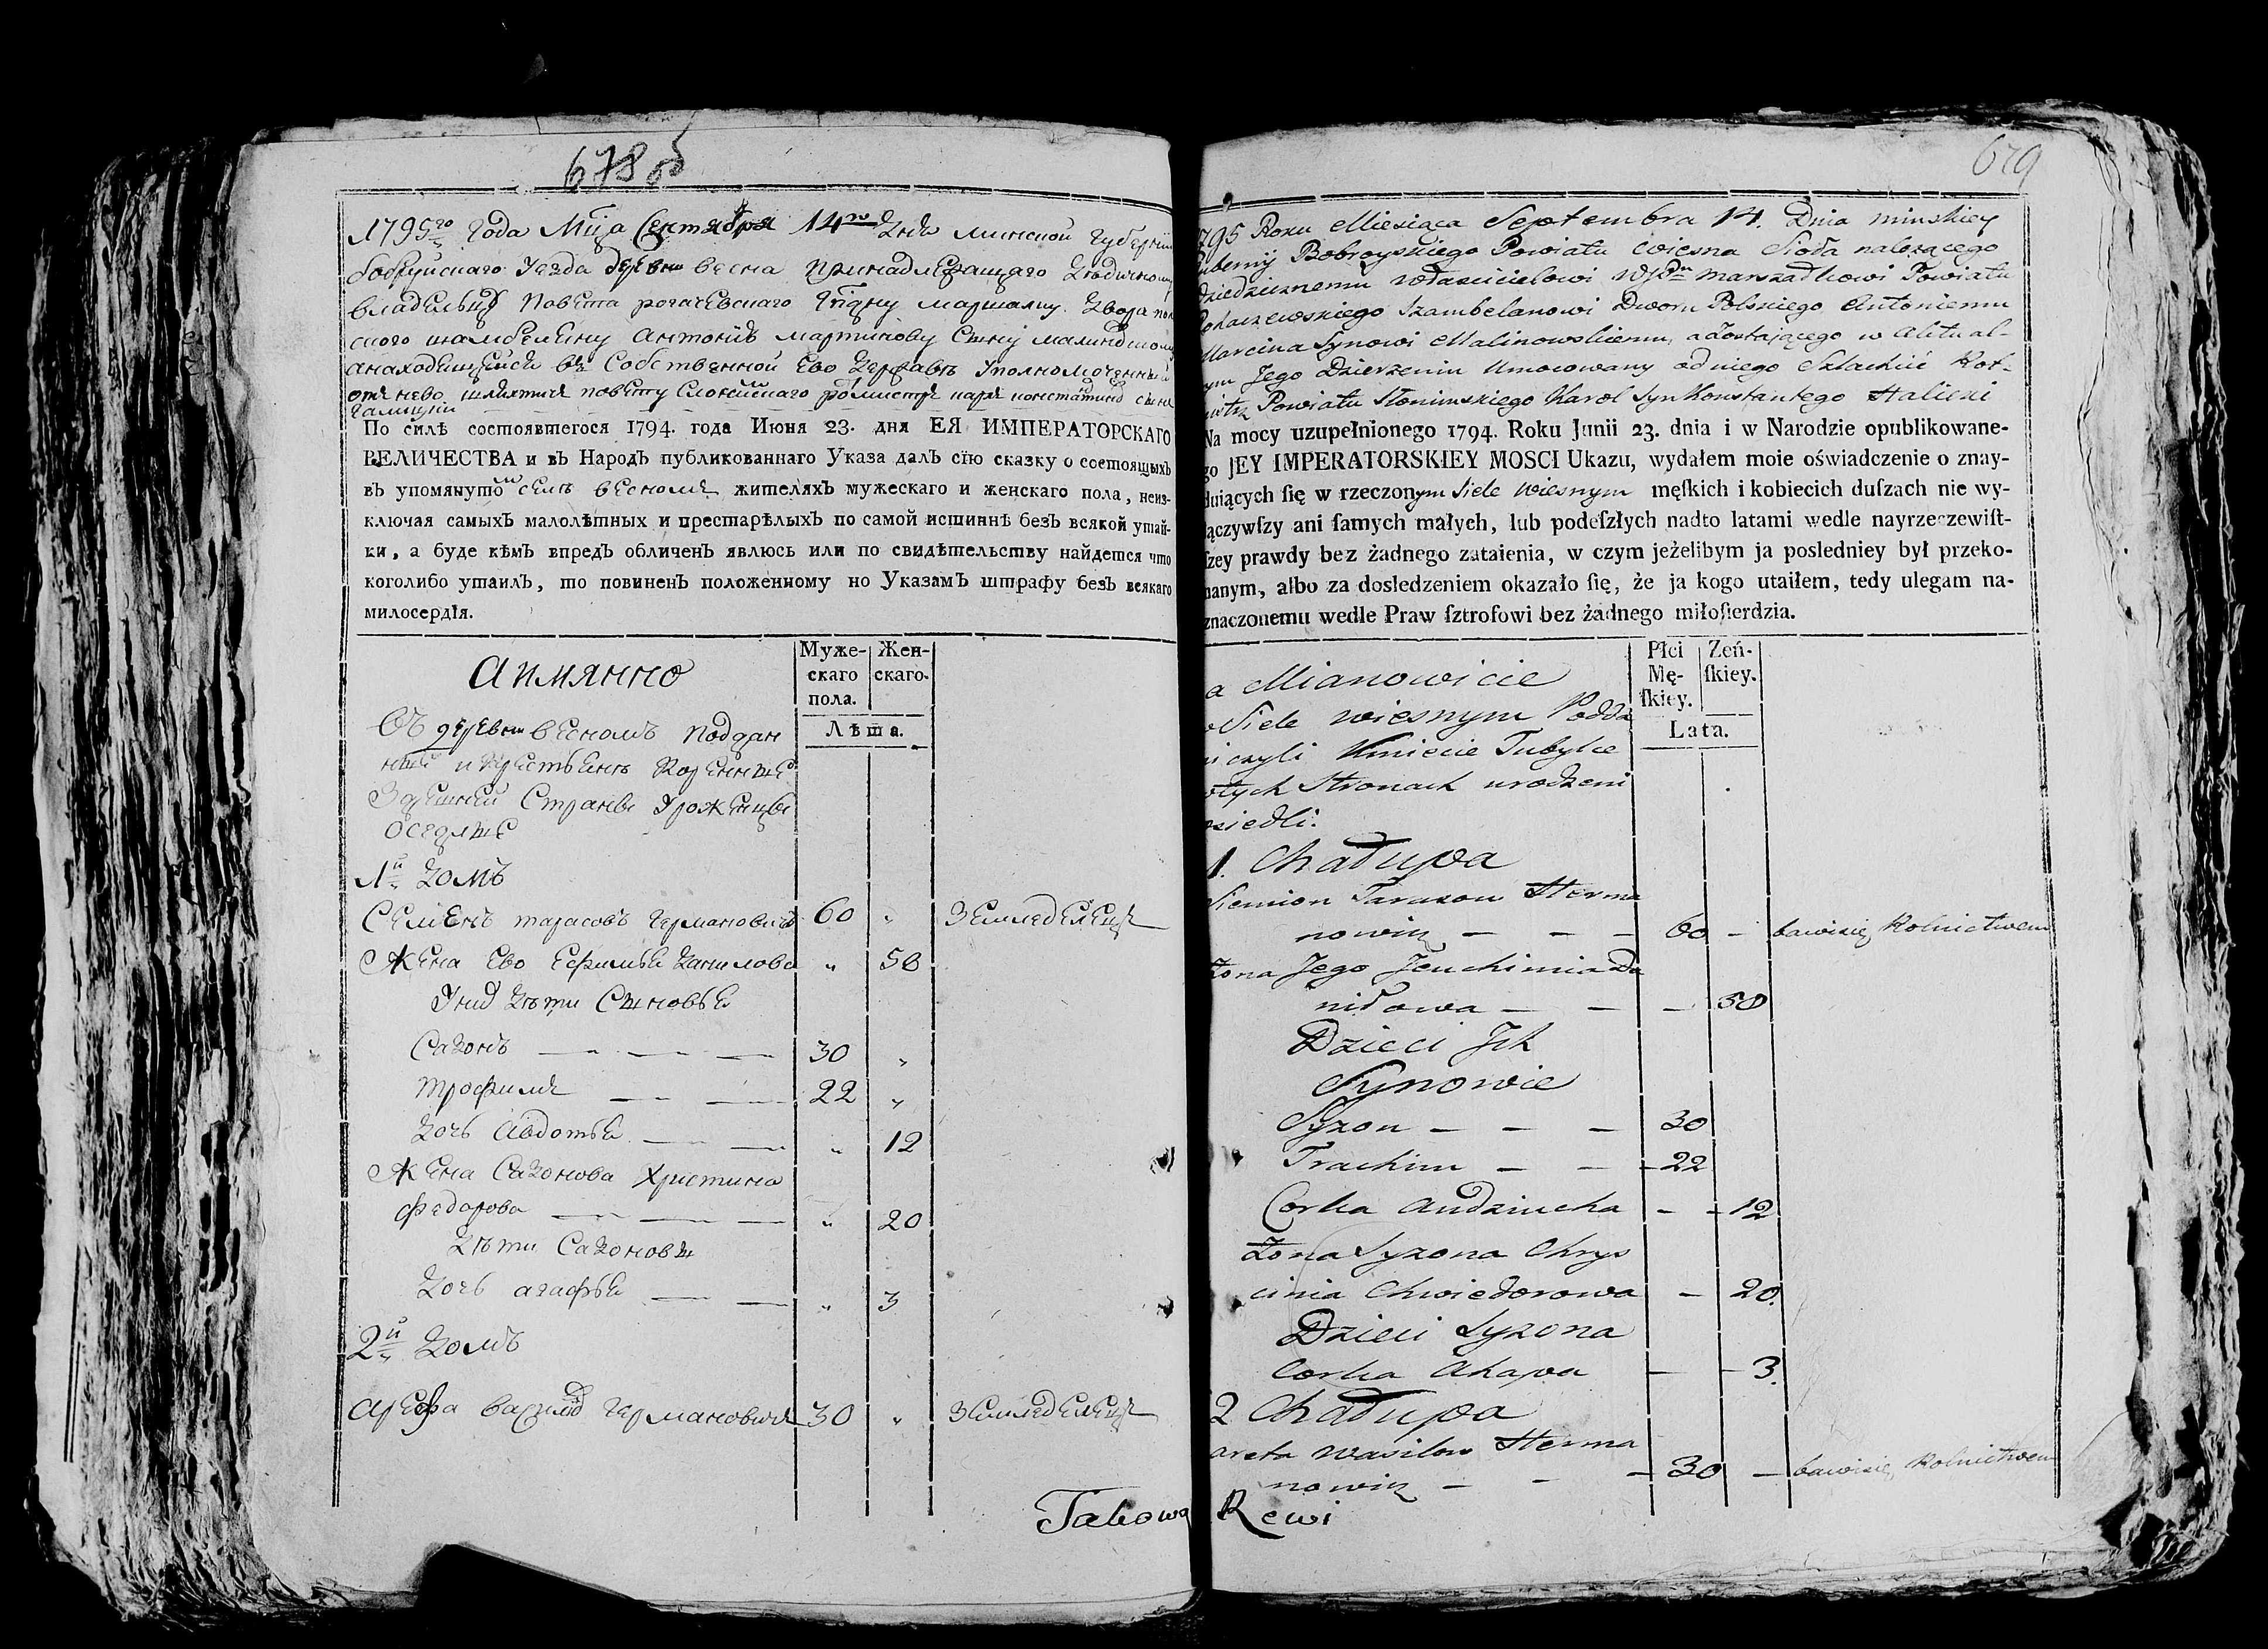 678 об
1795го Года Мца Сентября 14го дня минской губернии
бобруйскаго уезда деревни весна принадлежащаго
владельцу повета рогачевскаго Гпдну маршалку двора пол
ского шамбеляну Антонию мартинову сыну малиновскому
а находящейся въ собственной Ево державе уполномоченный
отъ нево шляхтичъ повету Слонимскаго ротмистръ
галицкий
По силѣ состоявшегося 1794. года Июня 23. дня ЕЯ ИМПЕРАТОРСКАГО
ВЕЛИЧЕСТВА и въ Народъ публикованнаго Указа далъ сїю сказку о состоящыхъ
въ упомянутом селе весноме жителяхъ мужескаго и женскаго пола, неиз-
ключая самыхъ малолѣтныхъ и престарѣлыхъ по самой истиннѣ безъ всякой утай-
ки, а буде кѣмъ впредъ обличенъ явлюсь или по свидѣтельству найдется что
коголибо утаилъ, то повиненъ положенному по Указамъ штрафу безъ всякаго
милосердїя.
а имянно
Муже-
скаго
пола.
Жен-
скаго.
Лѣта.
Въ деревни весномъ поддан
ные и крестьяне коренные
здешней страны уроженцы
оседлые
1й домъ
Семенъ тарасовъ германовичъ 60 " земледелецъ
Жена Ево Ефимья данилова " 58
У них дети сыновья
Сазонъ — — — 30 "
трофимъ — — 22 "
дочь Авдотья — — " 12
Жена Сазонова Христина
федорова — — — " 20
дети Сазоновы
дочь агафья — — " 3
2й домъ
Арефа василіовъ германовичъ 30 " земледелецъ
Takowa
679
1795 Roku Miesiąca Septembra 14. Dnia minskiey
Gubernij Bobroyskiego Powiatu Wiesna Sioła należącego
dziedzicznemu właścicielowi marszałkowi Powiatu
Rohaczewskiego Szambelanowi Dworu Polskiego Antoniemu
Marcina Synowi Malinowskiemu, a zostaiącego w aktual-
nym Jego Dzierżeniu Umocowany od niego Szlachcic Rot-
mistrz Powiatu Słonimskiego Karol Syn Konstantego Halicki
Na mocy uzupełnionego 1794. Roku Junii 23. dnia i w Narodzie opublikowane-
go JEY IMPERATORSKIEY MOSCI Ukazu, wydałem moie oświadczenie o znay-
duiących ſię w rzeczonym Siele Wiesnym męſkich i kobiecich duſzach nie wy-
łączywſzy ani ſamych małych, lub podeſzłych nadto latami wedle nayrzeczewiſt-
ſzey prawdy bez żadnego zataienia, w czym jeżelibym ja posledniey był przeko-
nanym, albo za dosledzeniem okazało ſię, że ja kogo utaiłem, tedy ulegam na-
znaczonemu wedle Praw ſztrofowi bez żadnego miłoſierdzia.
a Mianowicie
Płci
Mę-
ſkiey.
Zeń-
ſkiey.
Lata.
w Siele wiesnym Podda
ni czyli Kmiecie Tubylce
w tych Stronach urodzeni
osiedli.
1. Chałupa
Siemion Tarasow Herma
nowicz — — — 60 — bawi się Rolnictwem
Żona Jego Jeuchimia Da
niłowa — — — 58
Dzieci Jch
Synowie
Syzon — — — 30
Trachim — — — 22
Corka Audziucha — — 12
Żona Syzona Chrys
cinia Chwiedorowa — 20.
Dzieci Syzona
Corka Ahapa — — 3.
2 Chałupa
areta Wasilow Herma
nowicz — — — 30 — bawi się Rolnictwem
Rewi